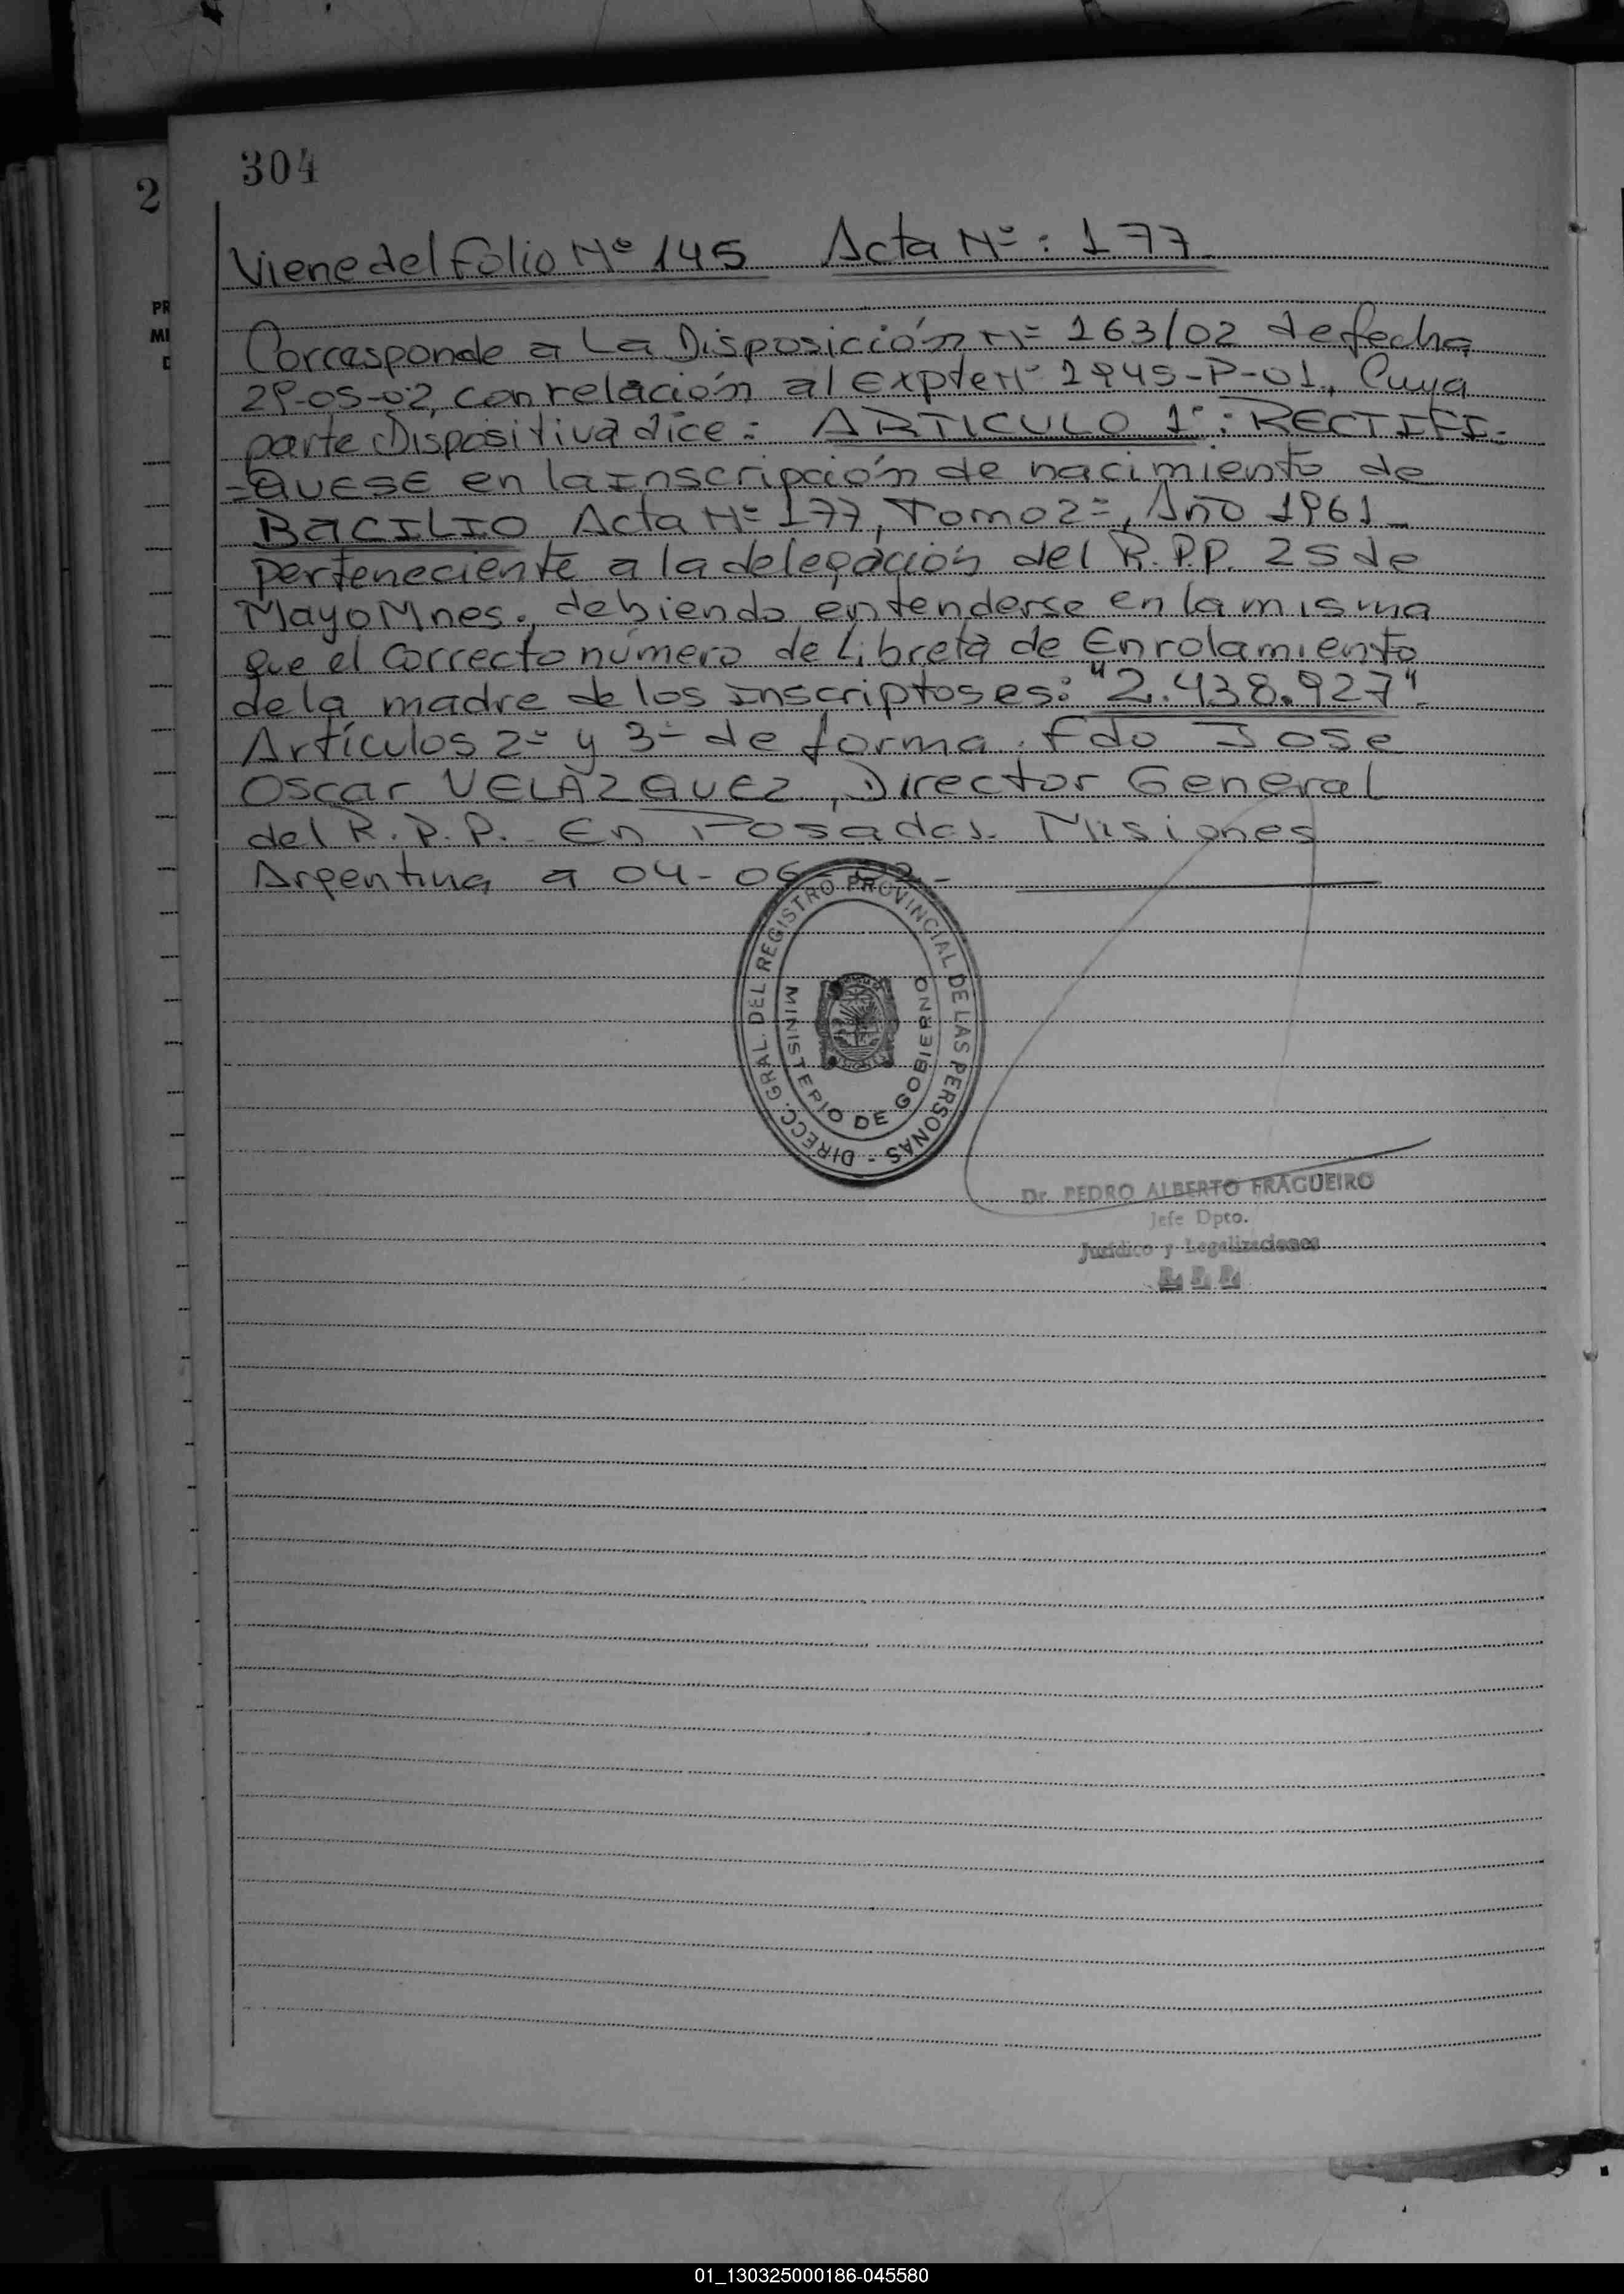 304
2
PR
MI
D
Viene del folio Nº 145 Acta Nº: 177.
Corresponde a La Disposición Nº 163/02 de fecha
29-05-02, con relación al Expte Nº 2945-P-01, Cuya
parte Dispositiva dice: ARTICULO 1º: RECTIFI-
-QUESE en la Inscripción de nacimiento de
BACILIO Acta Nº 177, Tomo 2º, Año 1961-
perteneciente a la delegación del R.P.P. 25 de
Mayo Mnes., debiendo entenderse en la misma
que el Correcto número de Libreta de Enrolamiento
de la madre de los Inscriptos es: "2.438.927".
Artículos 2º y 3º de forma. Fdo Jose
Oscar VELÁZQUEZ, Director General
del R.P.P. En Posadas. Misiones
Argentina a 04-06-02-
DIRECC. GRAL. DEL REGISTRO PROVINCIAL DE LAS PERSONAS -
MINISTERIO DE GOBIERNO
Dr. PEDRO ALBERTO FRAGUEIRO
Jefe Dpto.
Jurídico y Legalizaciones
R. P. P.
01_130325000186-045580